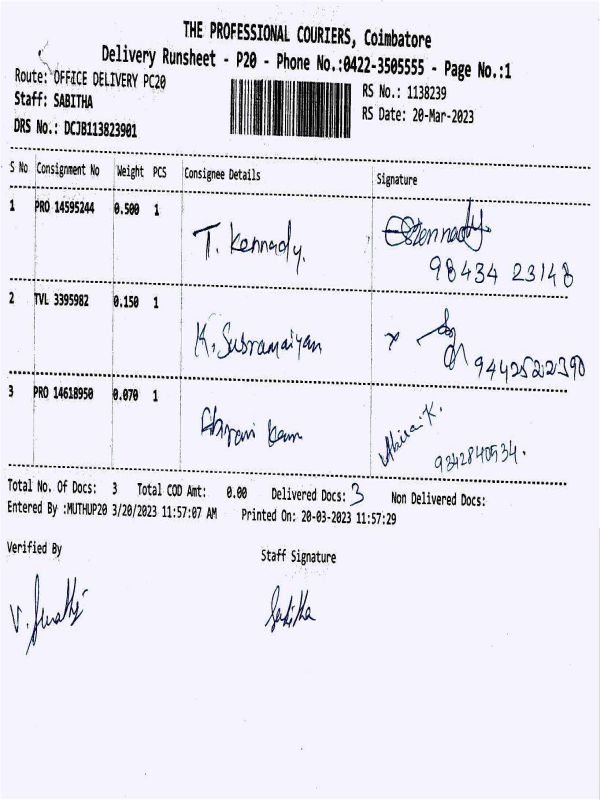 THE PROFESSIONAL COURIERS, Coimbatore
Delivery Runsheet - P20 - Phone No.:0422-3505555 - Page No.:1
Route: OFFICE DELIVERY PC20
RS No.: 1138239
Staff: SABITHA
RS Date: 20-Mar-2023
DRS No.: DCJB113823901
S No Consignment No Weight PCS Consignee Details Signature
1 PRO 14595244 0.500 1 T. Kennady. Kennady
98434 23148
2 TVL 3395982 0.150 1 K. Subramaiyan x
9442522390
3 PRO 14618950 0.070 1 K.
9342840534.
Total No. Of Docs: 3 Total COD Amt: 0.00 Delivered Docs: 3 Non Delivered Docs:
Entered By :MUTHUP20 3/20/2023 11:57:07 AM Printed On: 20-03-2023 11:57:29
Verified By Staff Signature
V. Sabitha